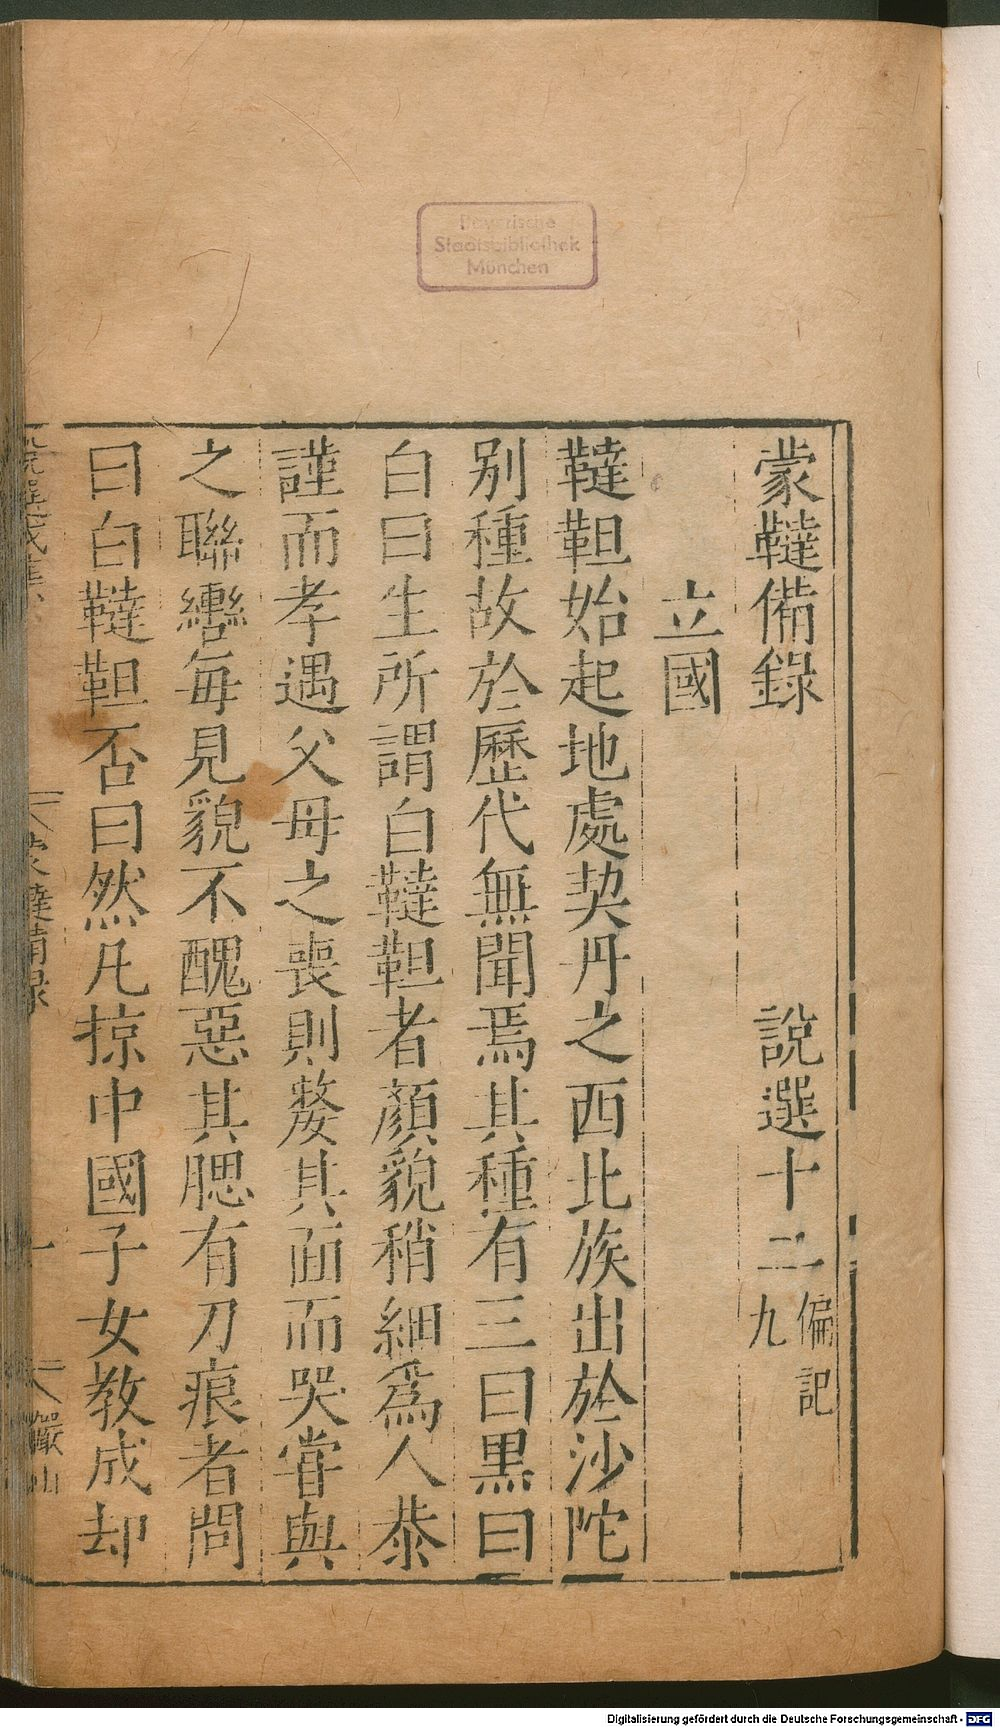 蒙韃備錄 說選十二 偏記九
立國
韃靼始起地處契丹之西北族出於沙陀
别種故於歷代無聞焉其種有三曰黑曰
白曰生所謂白韃靼者顏貌稍細爲人恭
謹而孝遇父母之喪則嫠其面而哭嘗與
之聯轡每見貌不醜惡其腮有刀痕者問
曰白韃靼否曰然凡掠中國子女教成却
蒙韃備錄
一
儼山
Bayerische
Staatsbibliothek
München
Digitalisierung gefördert durch die Deutsche Forschungsgemeinschaft - DFG